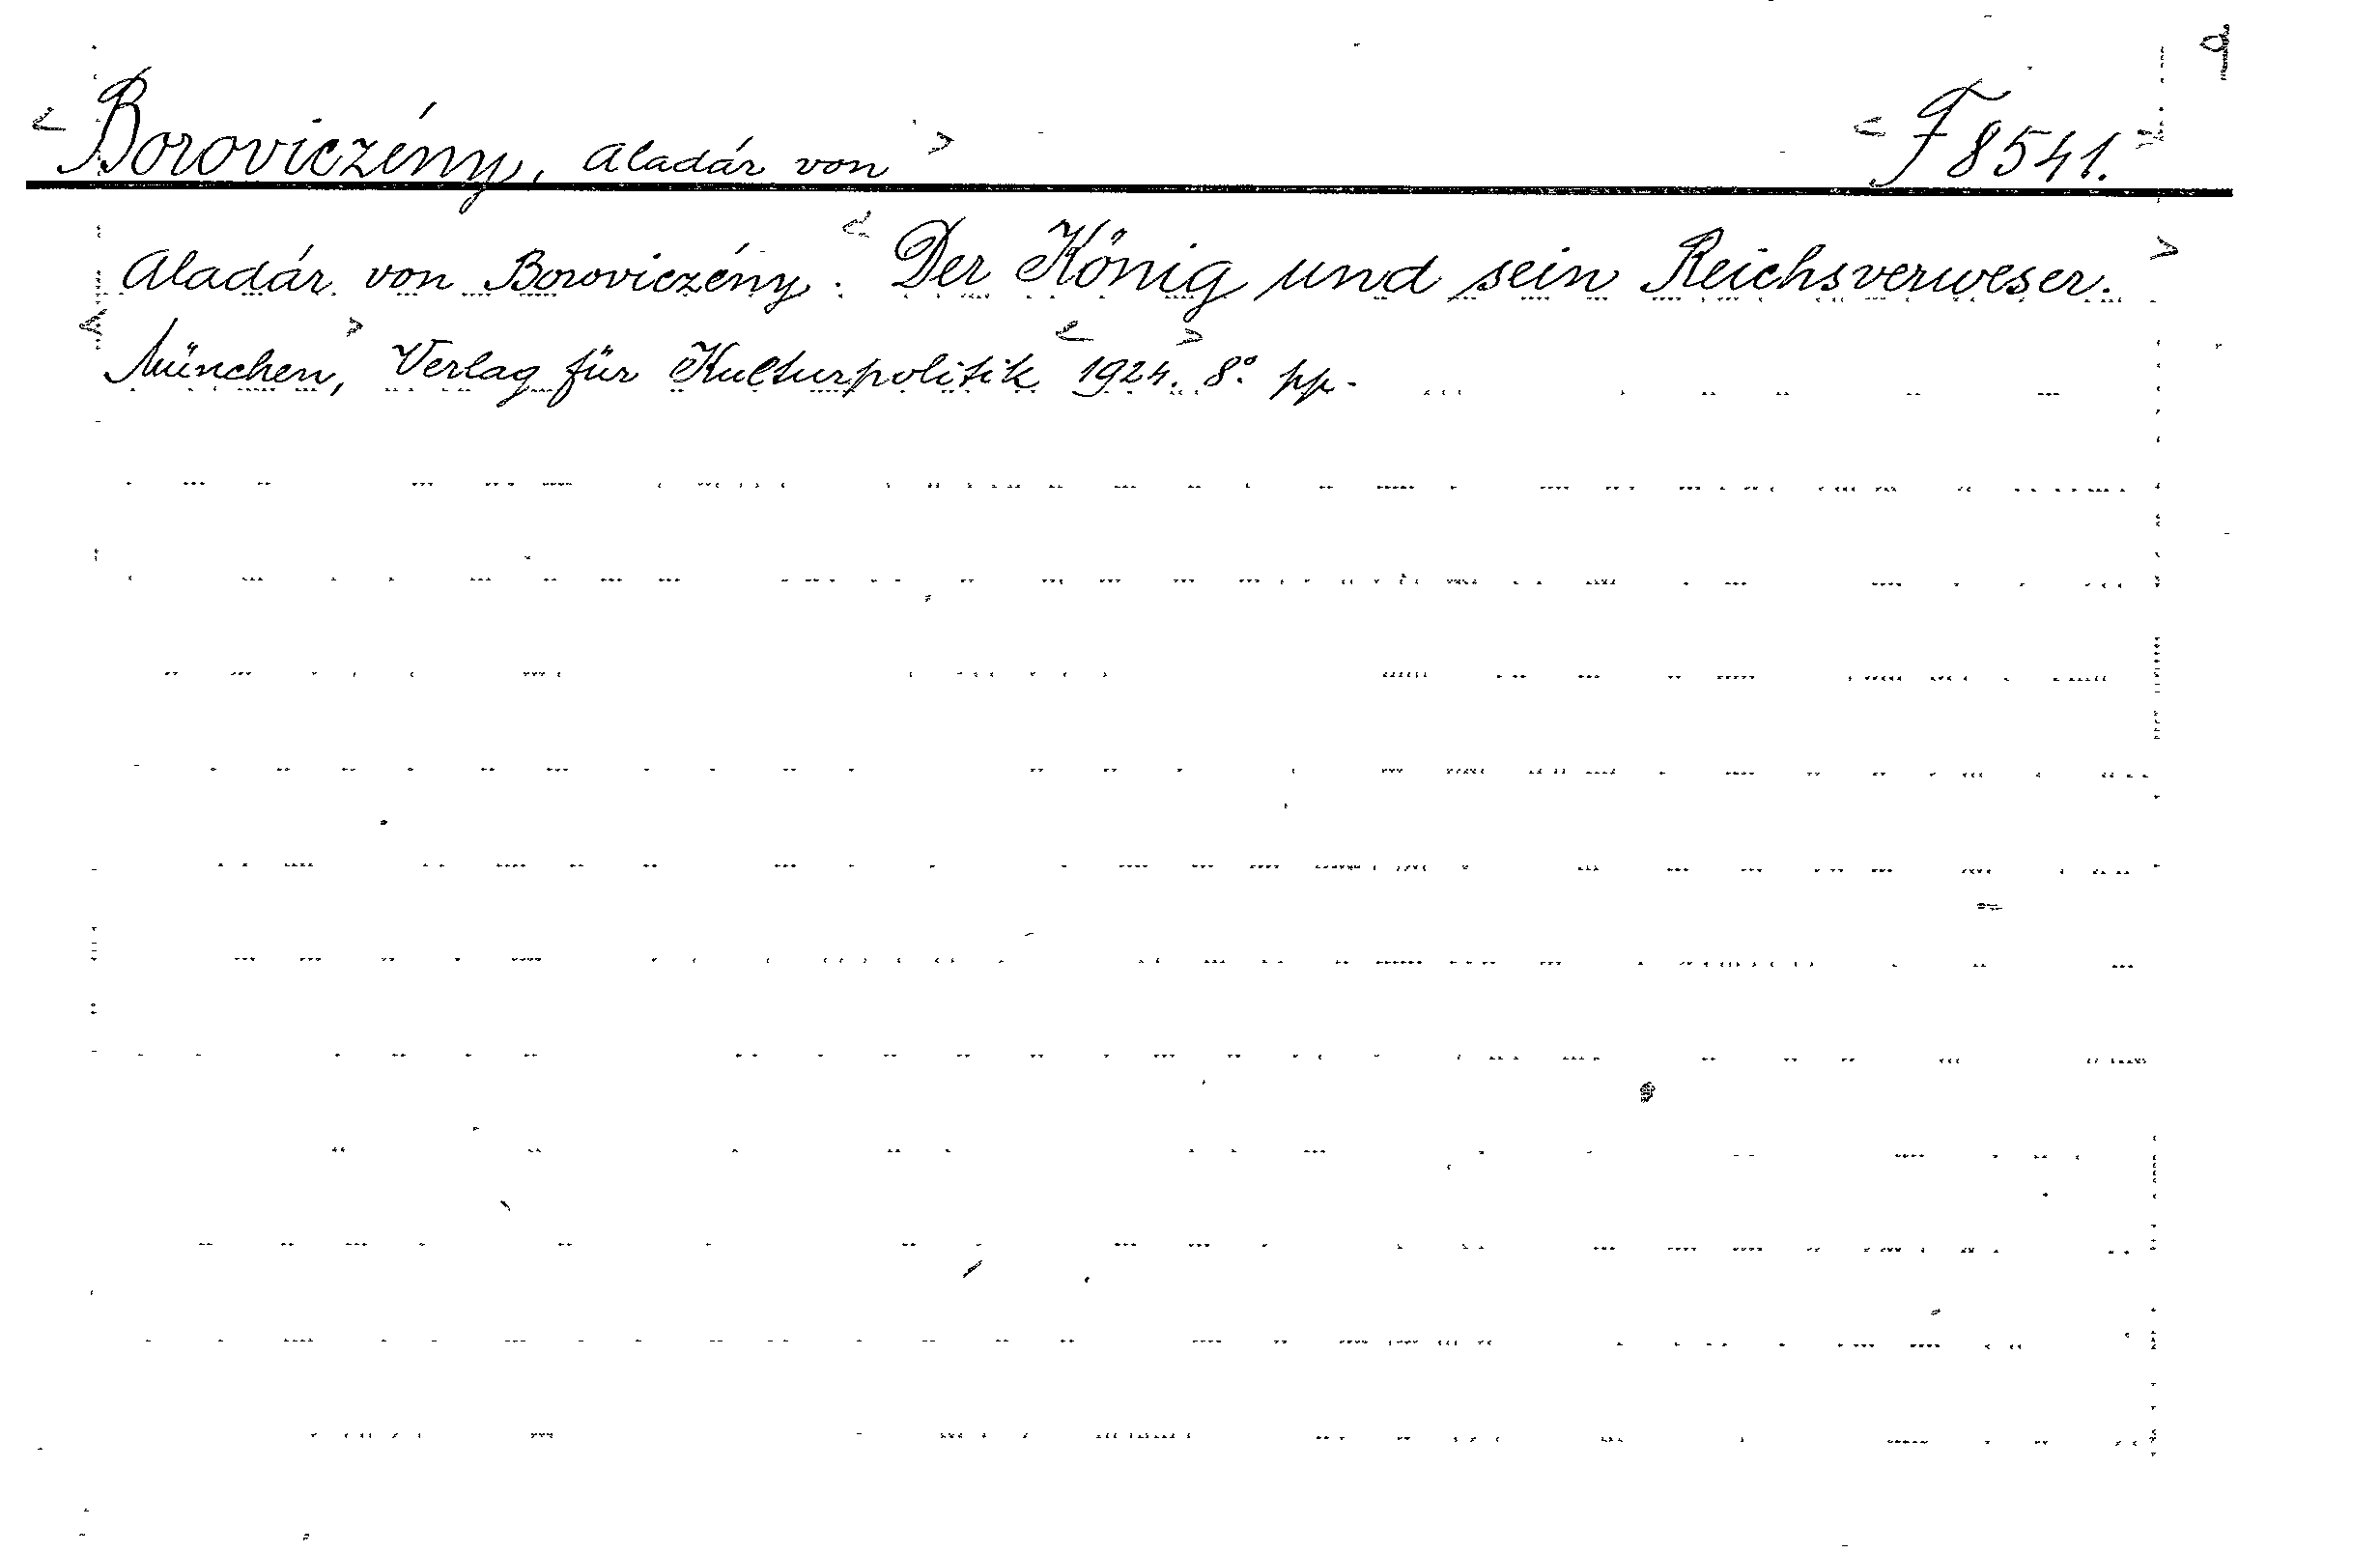 <Boroviczény, Aladár von> <F 8541.>
Aladár von Boroviczény: <Der König und sein Reichsverweser.>
<München,> Verlag für Kulturpolitik <1924.> 8°. pp.